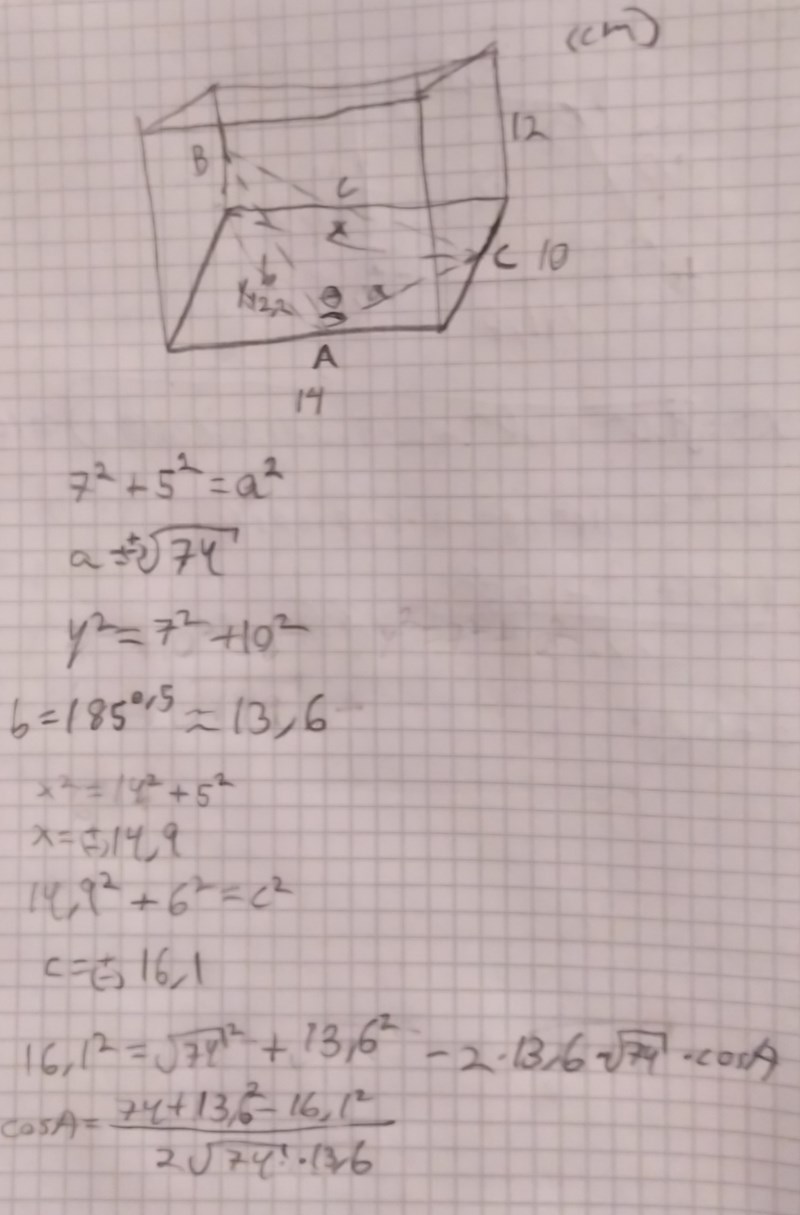 (cm)
12
B
c
x
C 10
b
y 12,2
θ a
A
14
7² + 5² = a²
a = ± √74
y² = 7² + 10²
b = 185^0,5 ≈ 13,6
x² = 14² + 5²
x = (±) 14,9
14,9² + 6² = c²
c = (±) 16,1
16,1² = √74² + 13,6² - 2 · 13,6 · √74 · cosA
cosA = (74 + 13,6² - 16,1²) / (2√74 · 13,6)